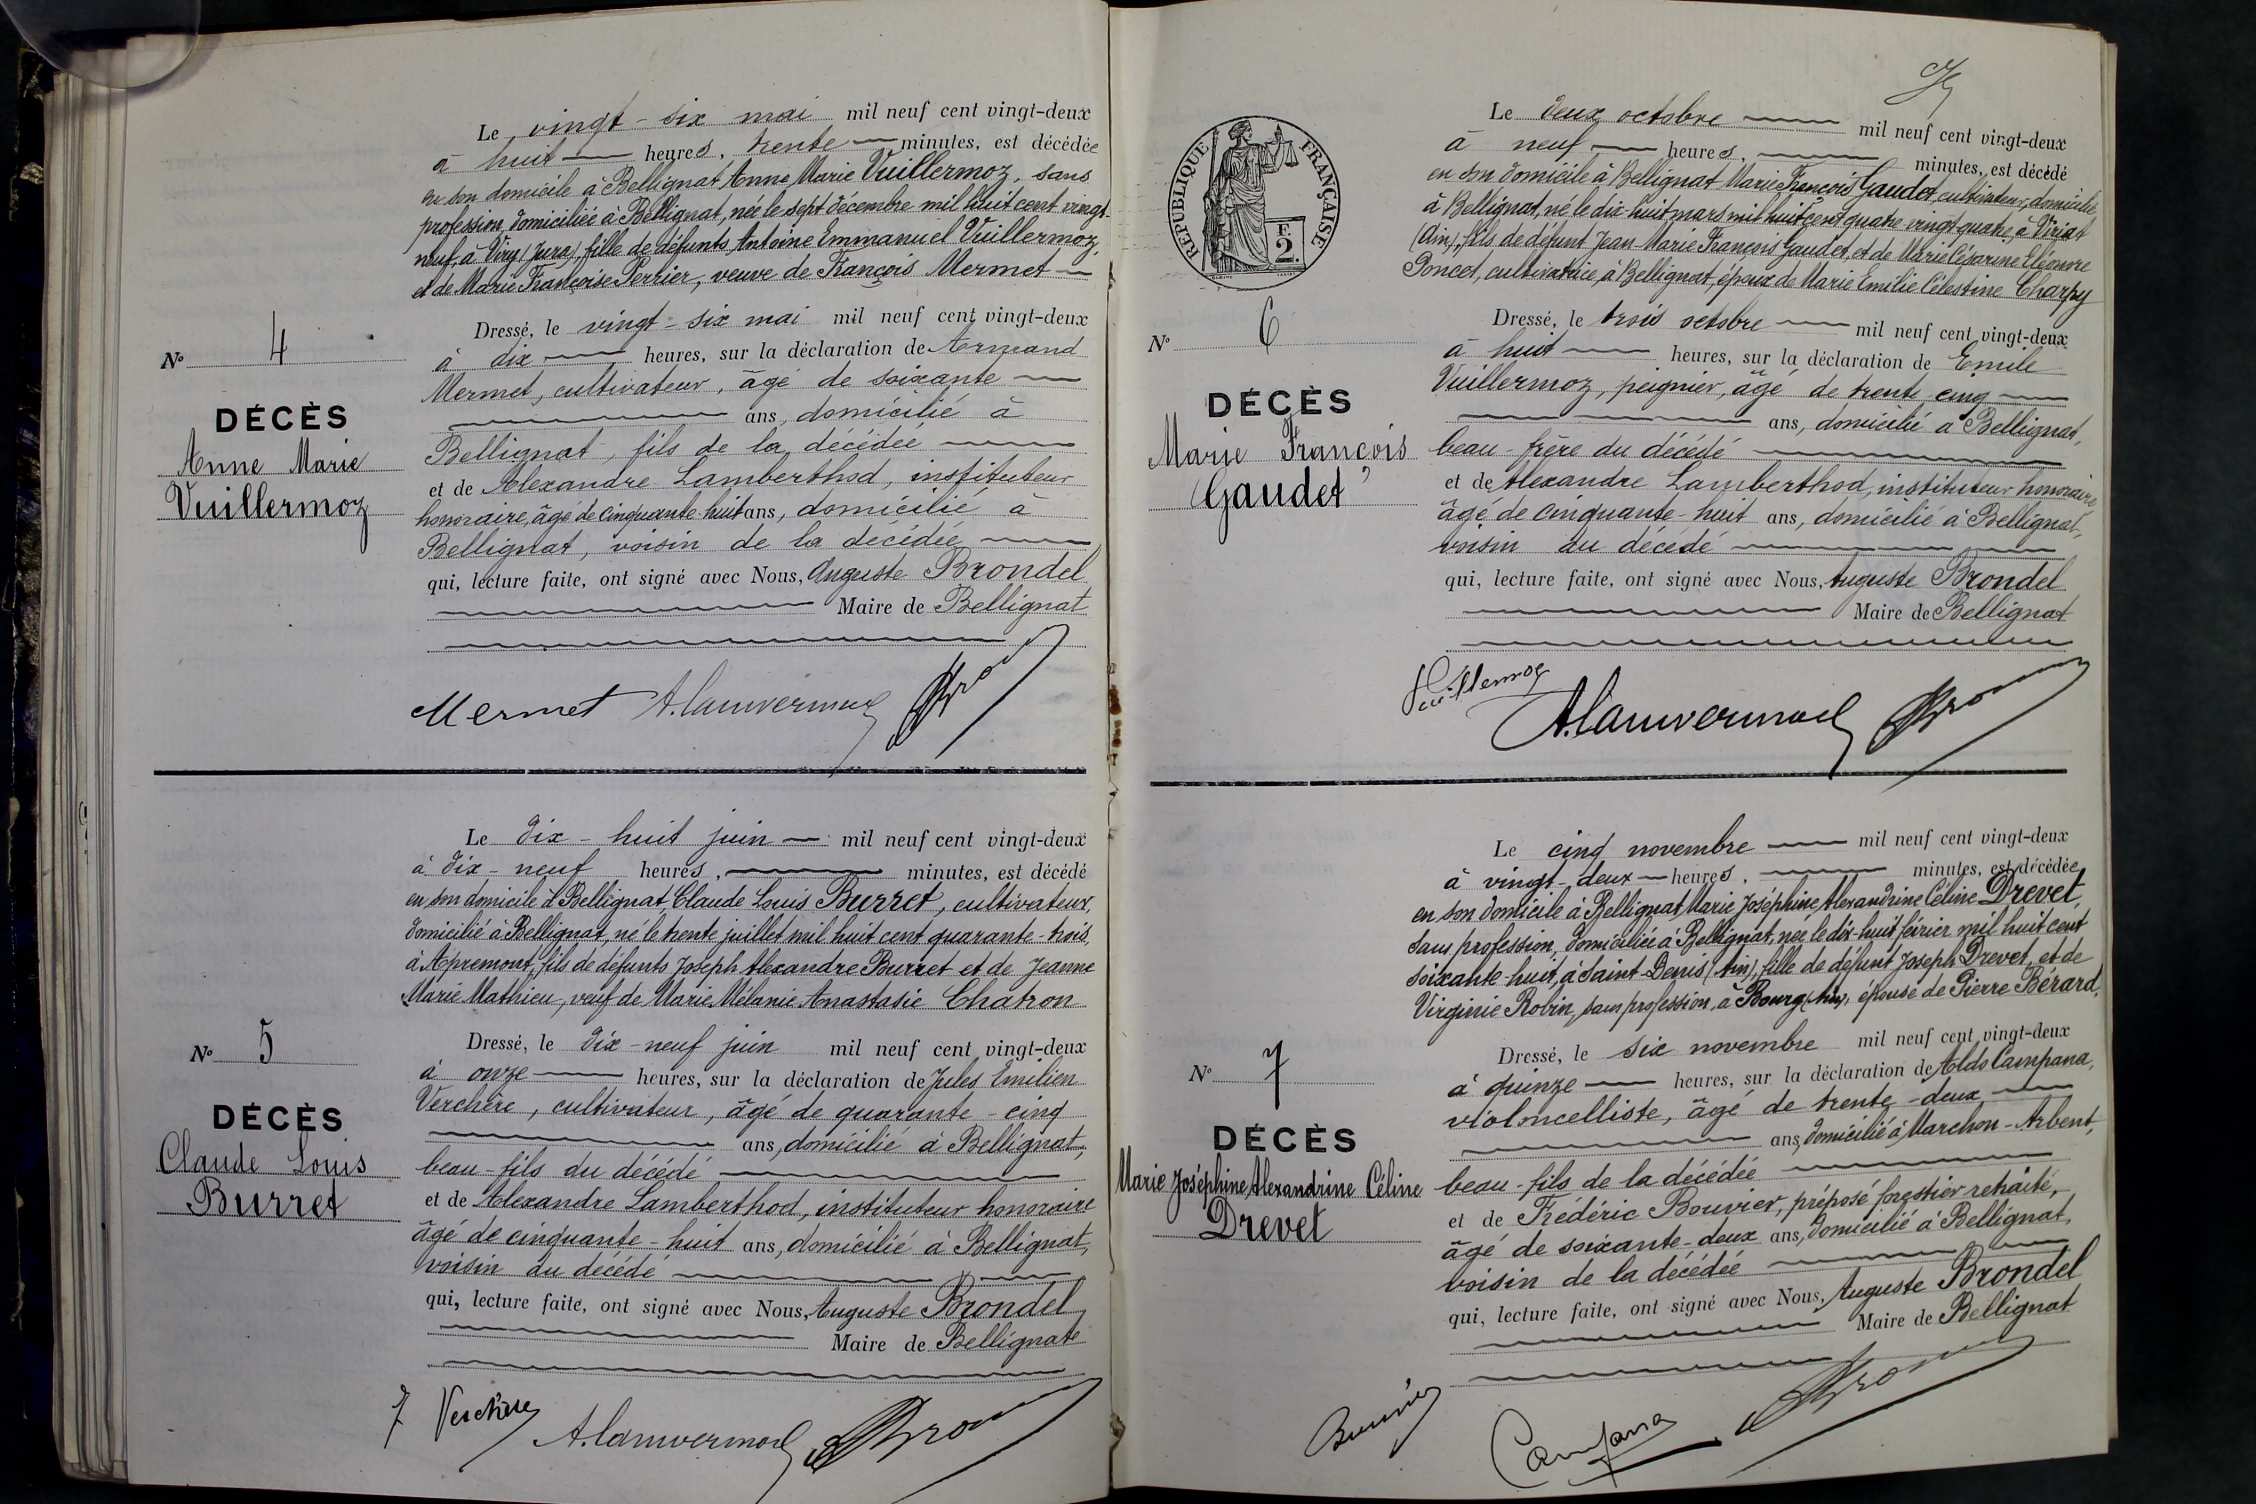 Le vingt-six mai mil neuf cent vingt-deux
à huit heures, trente minutes, est décédée
en son domicile à Bellignat Anne Marie Vuillermoz, sans
profession, domiciliée à Bellignat, née le sept décembre mil huit cent vingt-
neuf, à Viry (Jura), fille de défunts Antoine Emmanuel Vuillermoz,
et de Marie Françoise Perrier, veuve de François Mermet
Dressé, le vingt-six mai mil neuf cent vingt-deux
à dix heures, sur la déclaration de Armand
Mermet, cultivateur, âgé de soixante
ans, domicilié à
Bellignat, fils de la décédée
et de Alexandre Lamberthod, instituteur
honoraire, âgé de cinquante-huit ans, domicilié à
Bellignat, voisin de la décédée
qui, lecture faite, ont signé avec Nous, Auguste Brondel
Maire de Bellignat
Nº 4
DÉCÈS
Anne Marie
Vuillermoz
Mermet
Le dix-huit juin mil neuf cent vingt-deux
à dix-neuf heures, minutes, est décédé
en son domicile à Bellignat, Claude Louis Burret, cultivateur,
domicilié à Bellignat, né le trente juillet mil huit cent quarante-trois,
à Apremont, fils de défunts Joseph Alexandre Burret et de Jeanne
Marie Mathieu, veuf de Marie Mélanie Anastasie Chatron
Dressé, le dix-neuf juin mil neuf cent vingt-deux
à onze heures, sur la déclaration de Jules Emilien
Verchère, cultivateur, âgé de quarante-cinq
ans, domicilié à Bellignat,
beau-fils du décédé
et de Alexandre Lamberthod, instituteur honoraire
âgé de cinquante-huit ans, domicilié à Bellignat,
voisin du décédé
qui, lecture faite, ont signé avec Nous, Auguste Brondel
Maire de Bellignat
Nº 5
DÉCÈS
Claude Louis
Burret
Verchère
RÉPUBLIQUE FRANÇAISE
F.
2.
Le deux octobre mil neuf cent vingt-deux
à neuf heures, minutes, est décédé
en son domicile à Bellignat Marie François Gaudet, cultivateur, domicilié
à Bellignat, né le dix-huit mars mil huit cent quatre vingt quatre, à Viriat
(Ain), fils de défunt Jean Marie François Gaudet, et de Marie Césarine Eléonore
Poncet, cultivatrice, à Bellignat, époux de Marie Emilie Célestine Charpy
Dressé, le trois octobre mil neuf cent vingt-deux
à huit heures, sur la déclaration de Emile
Vuillermoz, peignier, âgé de trente cinq
ans, domicilié à Bellignat,
beau-frère du décédé
et de Alexandre Lamberthod, instituteur honoraire
âgé de cinquante-huit ans, domicilié à Bellignat,
voisin du décédé
qui, lecture faite, ont signé avec Nous, Auguste Brondel
Maire de Bellignat
Nº 6
DÉCÈS
Marie François
Gaudet
Vuillermoz
Le cinq novembre mil neuf cent vingt-deux
à vingt-deux heures, minutes, est décédée
en son domicile à Bellignat Marie Joséphine Alexandrine Céline Drevet,
sans profession, domiciliée à Bellignat, née le dix-huit février mil huit cent
soixante-huit, à Saint-Denis (Ain), fille de défunt Joseph Drevet, et de
Virginie Robin, sans profession, à Bourg (Ain), épouse de Pierre Bérard.
Dressé, le six novembre mil neuf cent vingt-deux
à quinze heures, sur la déclaration de Aldo Campana,
violoncelliste, âgé de trente-deux
ans, domicilié à Marchon-Arbent,
beau-fils de la décédée
et de Frédéric Bouvier, préposé forestier retraité,
âgé de soixante-deux ans, domicilié à Bellignat,
voisin de la décédée
qui, lecture faite, ont signé avec Nous, Auguste Brondel
Maire de Bellignat
Nº 7
DÉCÈS
Marie Joséphine Alexandrine Céline
Drevet
Bouvier
Campana